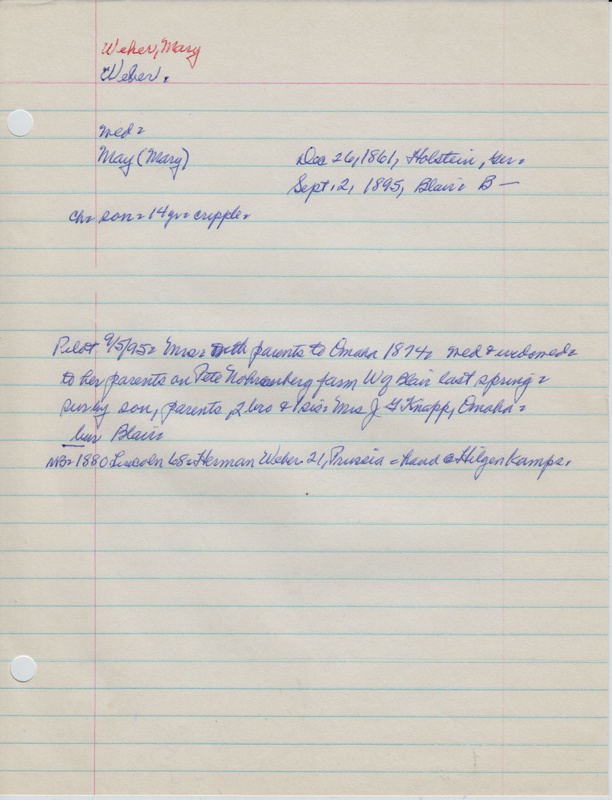 Weber, Mary
Weber.
med =
May (Mary)
Dec 26, 1861, Holstein, Ger.
Sept. 2, 1895, Blair = B —
ch = son = 14 yr = cripple =
Pilot 9/5/95 = Mrs = with parents to Omaha 1874 = med & widowed =
to her parents on Pete farm W of Blair last spring =
surv by son, parents, 2 bro & 1 sis = Mrs J. G Knapp, Omaha =
bur Blair =
NB = 1880 Lincoln 68 = Herman Weber 21, Prussia = hand @ Hilgenkamps.